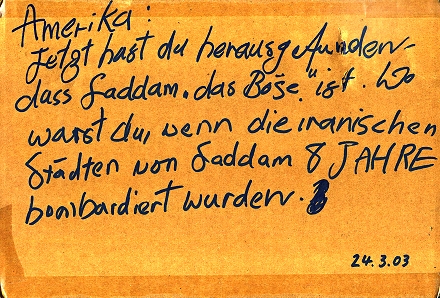 Amerika:
Jetzt hast du herausgefunden
dass Saddam "das Böse" ist. Wo
warst du, wenn die iranischen
Städten von Saddam 8 JAHRE
bombardiert wurden.
24.3.03